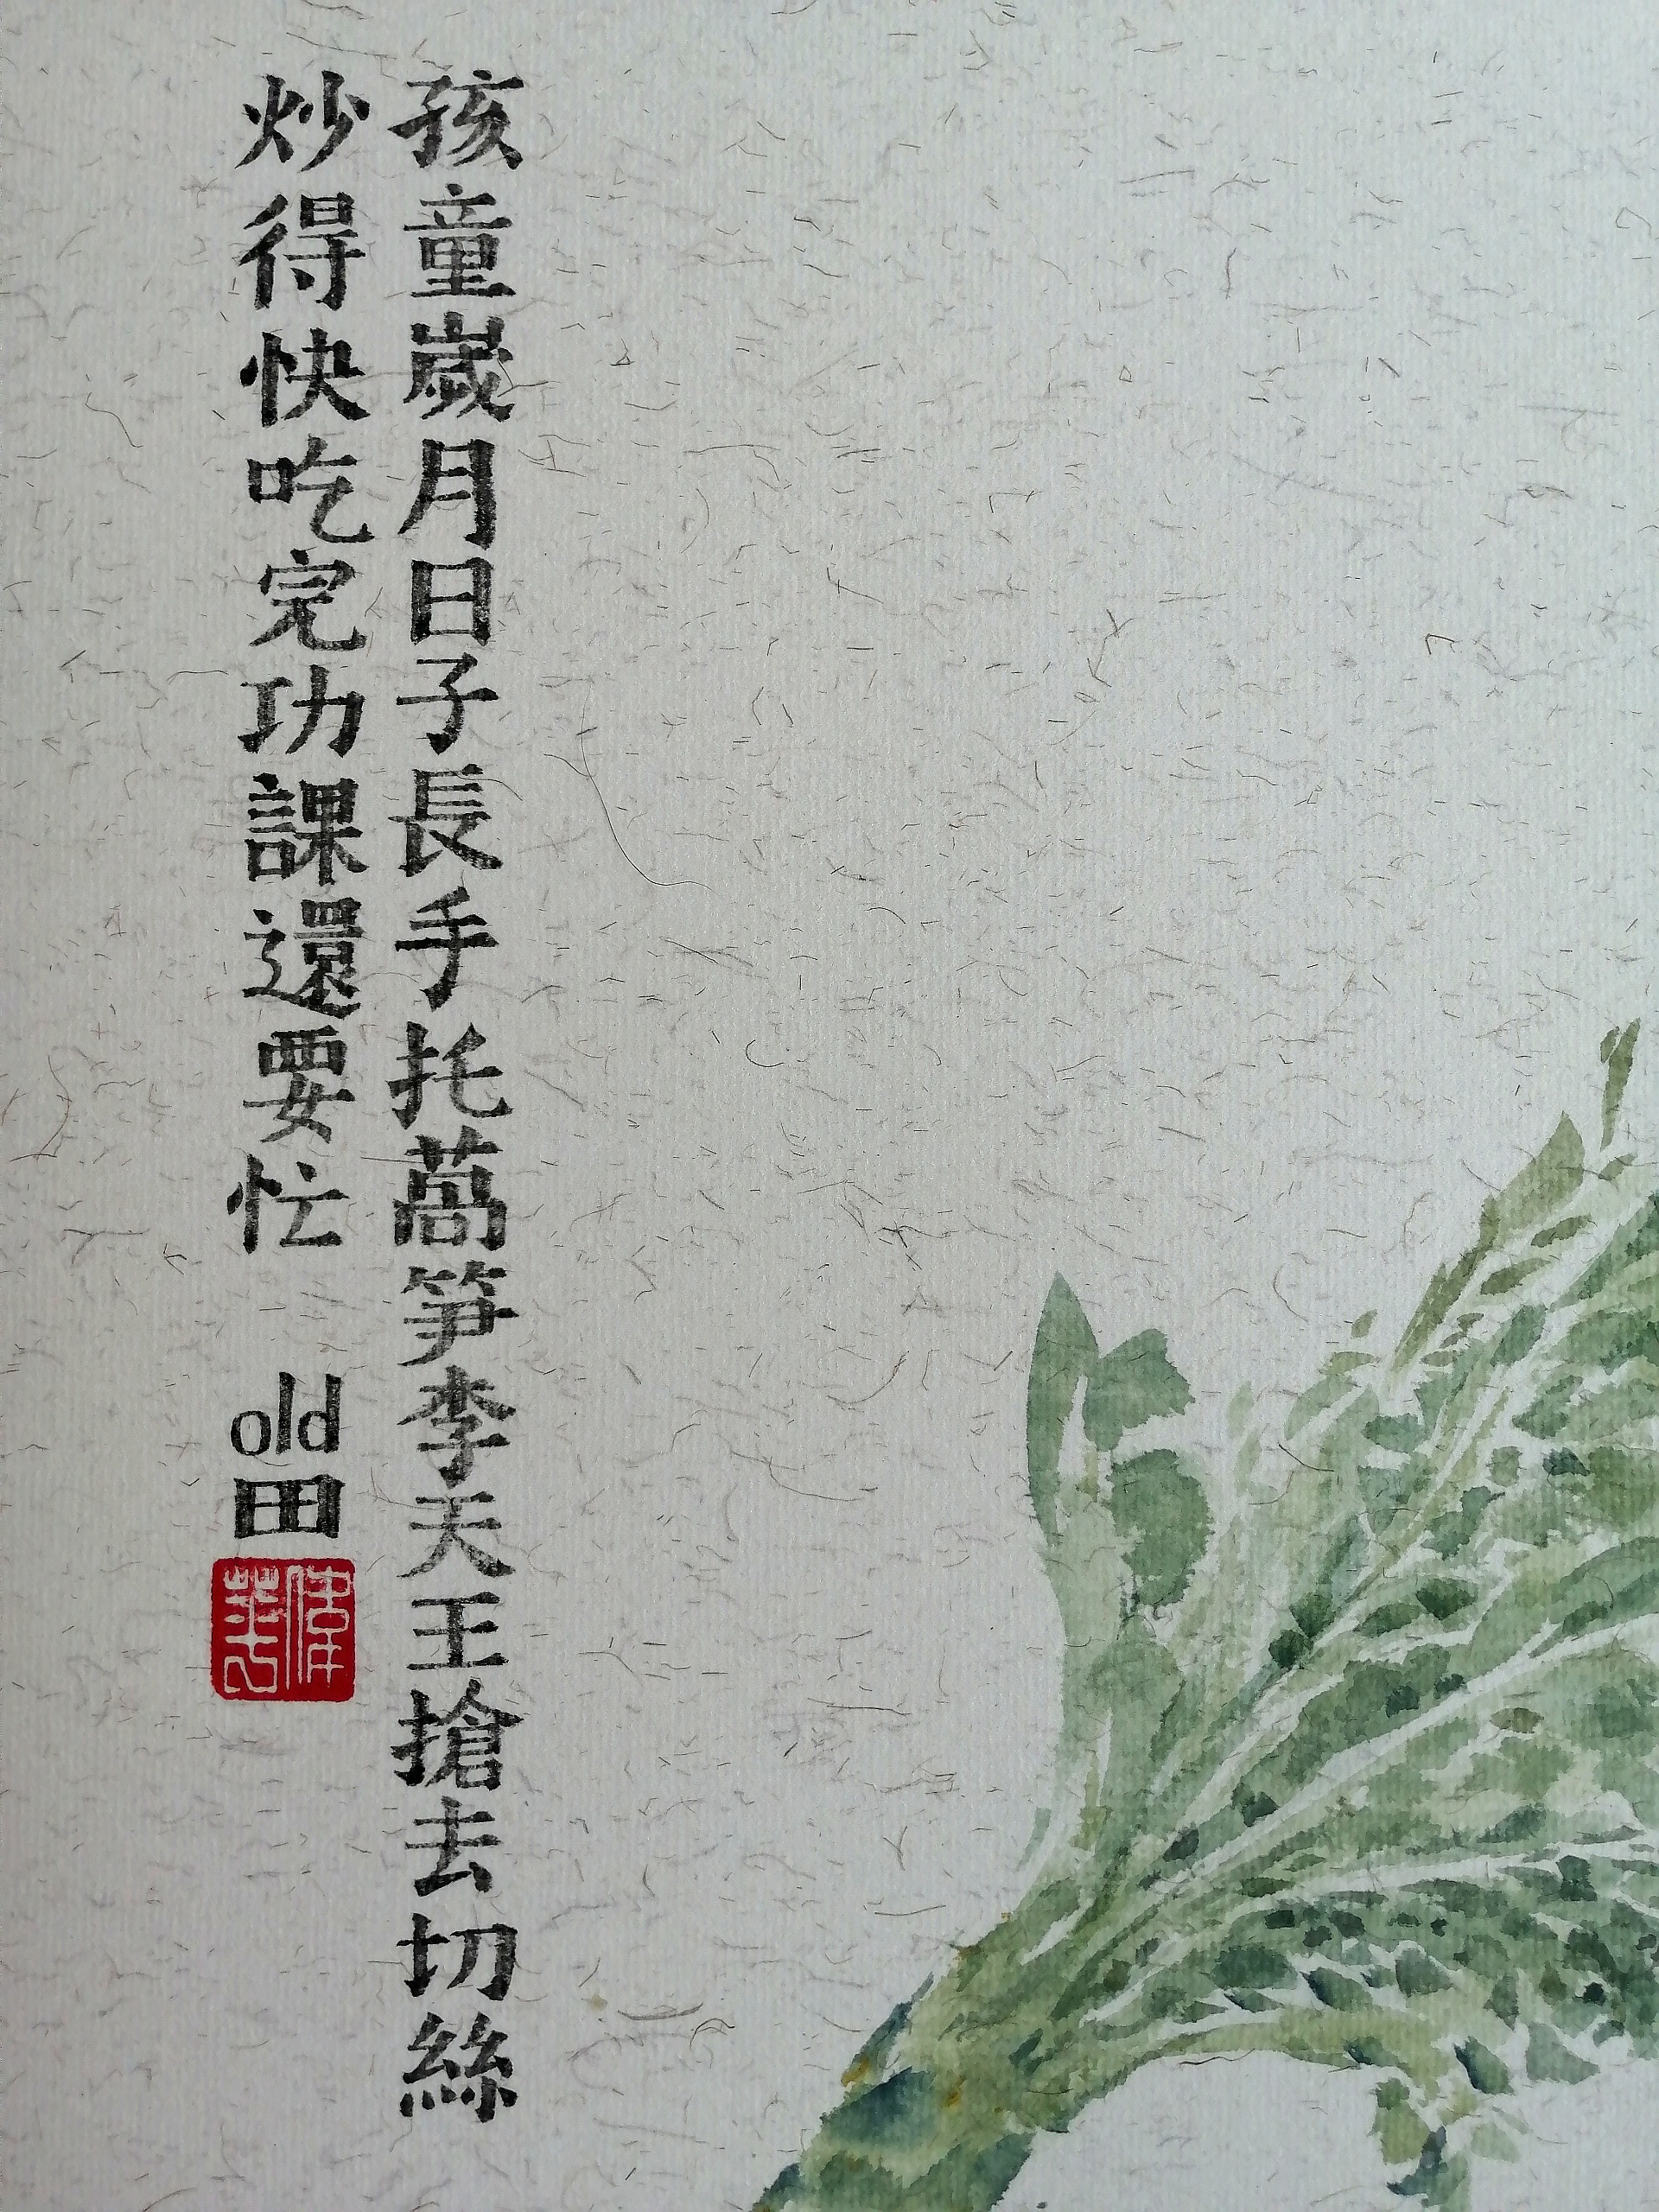 孩童歲月日子長手托萵筍李天王搶去切絲
炒得快吃完功課還要忙 old田